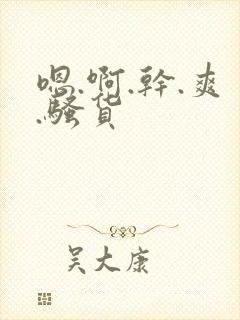 嗯.啊.幹.爽
.騷貨
吴大康